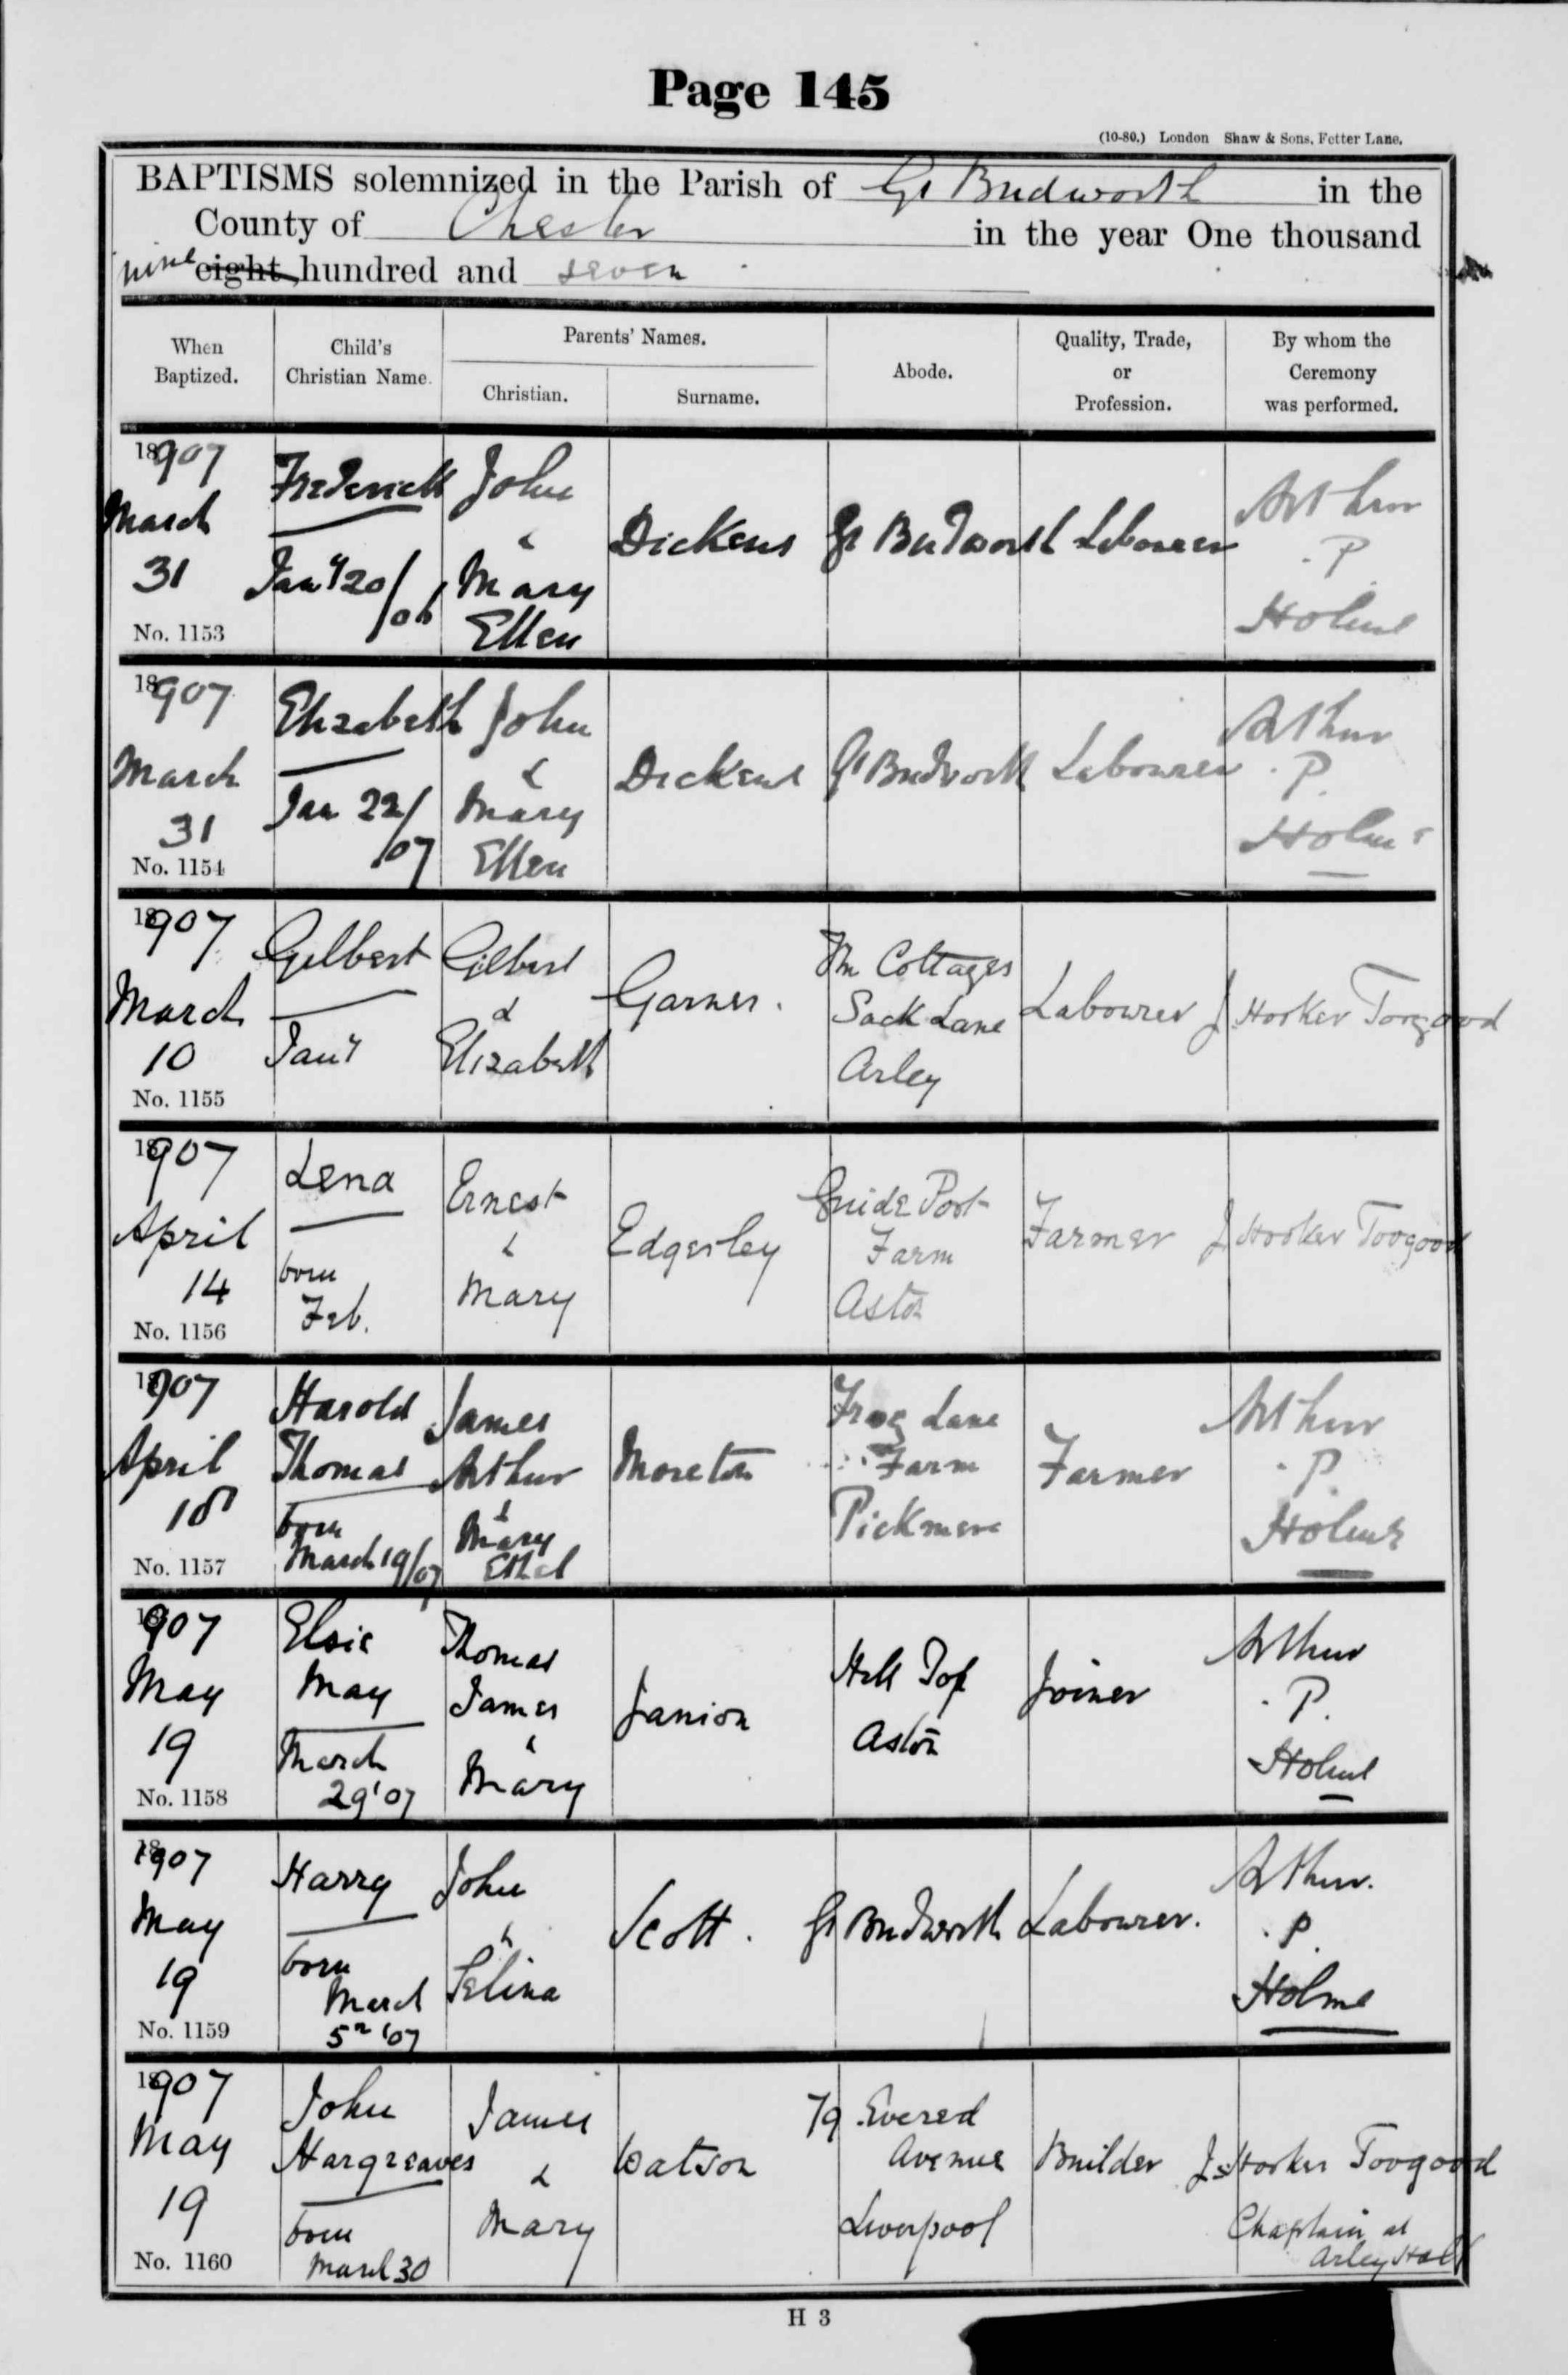 Page 145
(10-80.) London Shaw & Sons, Fetter Lane.
BAPTISMS solemnized in the Parish of Gt Budworth in the
County of Chester in the year One thousand
nine eight hundred and seven
When Baptized.
Child's Christian Name.
Parents' Names.
Christian.
Surname.
Abode.
Quality, Trade, or Profession.
By whom the Ceremony was performed.
1907
March
31
No. 1153
Frederick
Jany 20/06
John
&
Mary
Ellen
Dickens
Gt Budworth
Labourer
Arthur
P
Holme
1907
March
31
No. 1154
Elizabeth
Jan 22/
07
John
&
Mary
Ellen
Dickens
Gt Budworth
Labourer
Arthur
P.
Holme
1907
March
10
No. 1155
Gilbert
Jany
Gilbert
&
Elizabeth
Garner.
Cottages
Sack Lane
Arley
Labourer
J Hooker Toogood
1907
April
14
No. 1156
Lena
born
Feb.
Ernest
&
Mary
Edgerley
Guide Post
Farm
Aston
Farmer
J. Hooker Toogood
1907
April
No. 1157
Harold
Thomas
born
March 19/07
James
Arthur
&
Mary
Ethel
Moreton
Frog Lane
Farm
Pickmere
Farmer
Arthur
P.
Holme
1907
May
19
No. 1158
Elsie
May
March
29 '07
Thomas
James
&
Mary
Janion
Hill Top
Aston
Joiner
Arthur
P.
Holme
1907
May
19
No. 1159
Harry
born
March
5th '07
John
&
Selina
Scott.
Gt Budworth
Labourer.
Arthur.
P.
Holme
1907
May
19
No. 1160
John
Hargreaves
born
March 30
James
&
Mary
Watson
79 Evered
Avenue
Liverpool
Builder
J. Hooker Toogood
Chaplain at
Arley Hall
H 3